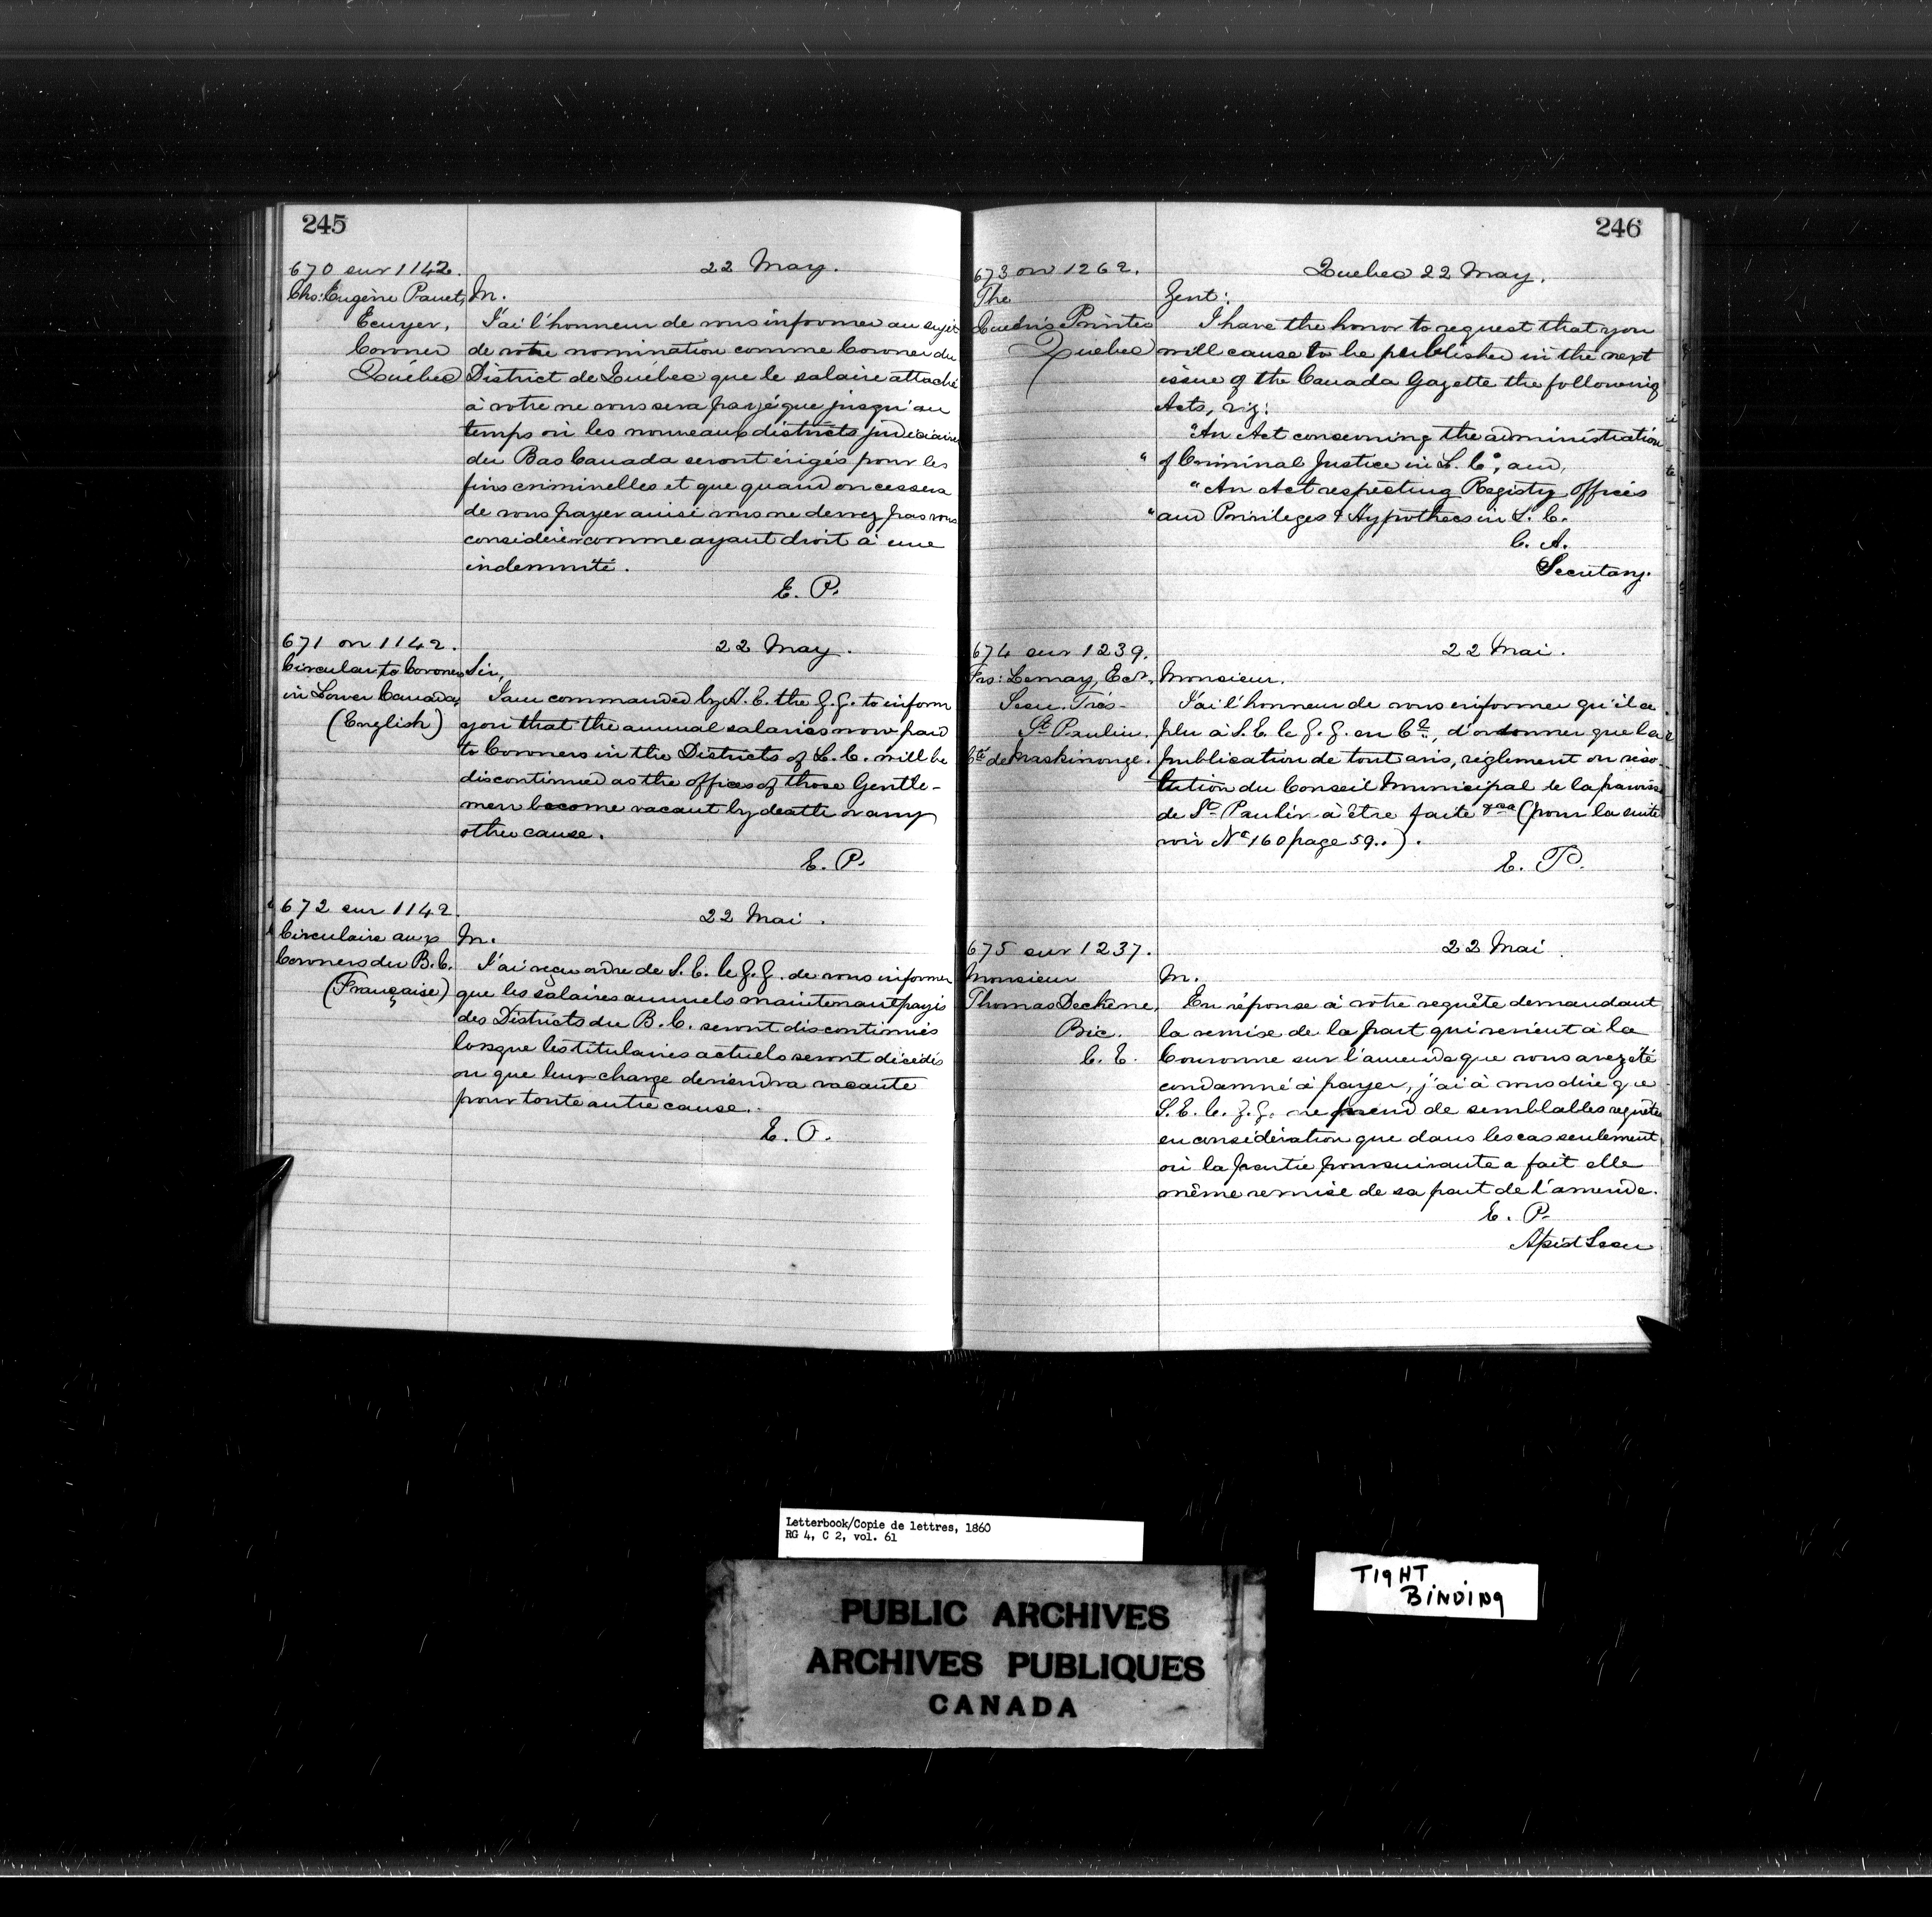 245
670 sur 1142.
Chs: Eugène Panet,
Ecuyer,
Coroner
Québec
22 May.
M.
J'ai l'honneur de vous informer au sujet
de votre nomination comme Coroner du
District de Québec que le salaire attaché
à votre ne vous sera payé que jusqu'au
temps où les nouveaux districts judiciaires
du Bas Canada seront érigés pour les
fins criminelles et que quand on cessera
de vous payer ainsi vous ne devrez pas vous
considérer comme ayant droit à une
indemnité.
E. P.
671 on 1142.
Circular to Coroners
in Lower Canada,
(English)
22 May.
Sir,
I am commanded by H. E. the G. G. to inform
you that the annual salaries now paid
to Coroners in the Districts of L. C. will be
discontinued as the offices of those Gentle-
men become vacant by death or any
other cause.
E. P.
672 sur 1142.
Circulaire aux
Coroners du B. C.
(Française)
22 Mai.
M.
J'ai reçu ordre de S. E. le G. G. de vous informer
que les salaires annuels maintenant payés
des Districts du B. C. seront discontinués
lorsque les titulaires actuels seront décédés
ou que leur charge deviendra vacante
pour toute autre cause.
E. P.
246
673 on 1262.
The
Queen's Printer
Quebec
Quebec 22 May.
Gent:
I have the honor to request that you
will cause to be published in the next
issue of the Canada Gazette the following
Acts, viz:
"An Act concerning the administration
" of Criminal Justice in L. C", and,
"An Act respecting Registry Offices
" and Privileges & Hypothecs in L. C.
C. A.
Secretary.
674 sur 1239.
Frs: Lemay, Ecr,
Secr. Trés-
St Paulin,
Cté de Maskinongé.
22 Mai.
Monsieur.
J'ai l'honneur de vous informer qu'il a
plu à S. E. le G. G. en Cl, d'ordonner que la
publication de tout avis, règlement ou réso-
lution du Conseil Municipal de la paroisse
de St Paulin à être faite &ca (pour la suite
voir No 160 page 59..).
E. P.
675 sur 1237.
Monsieur
Thomas Dechêne,
Bic.
C. E.
22 Mai
M.
En réponse à votre requête demandant
la remise de la part qui revient à la
Couronne sur l'amende que vous avez été
condamné à payer, j'ai à vous dire que
S. E. le. G. G. ne prend de semblables requêtes
en considération que dans les cas seulement
où la partie poursuivante a fait elle
même remise de sa part de l'amende.
E. P.
Assist Secr
Letterbook/Copie de lettres, 1860
RG 4, C 2, vol. 61
TIGHT
BINDING
PUBLIC ARCHIVES
ARCHIVES PUBLIQUES
CANADA